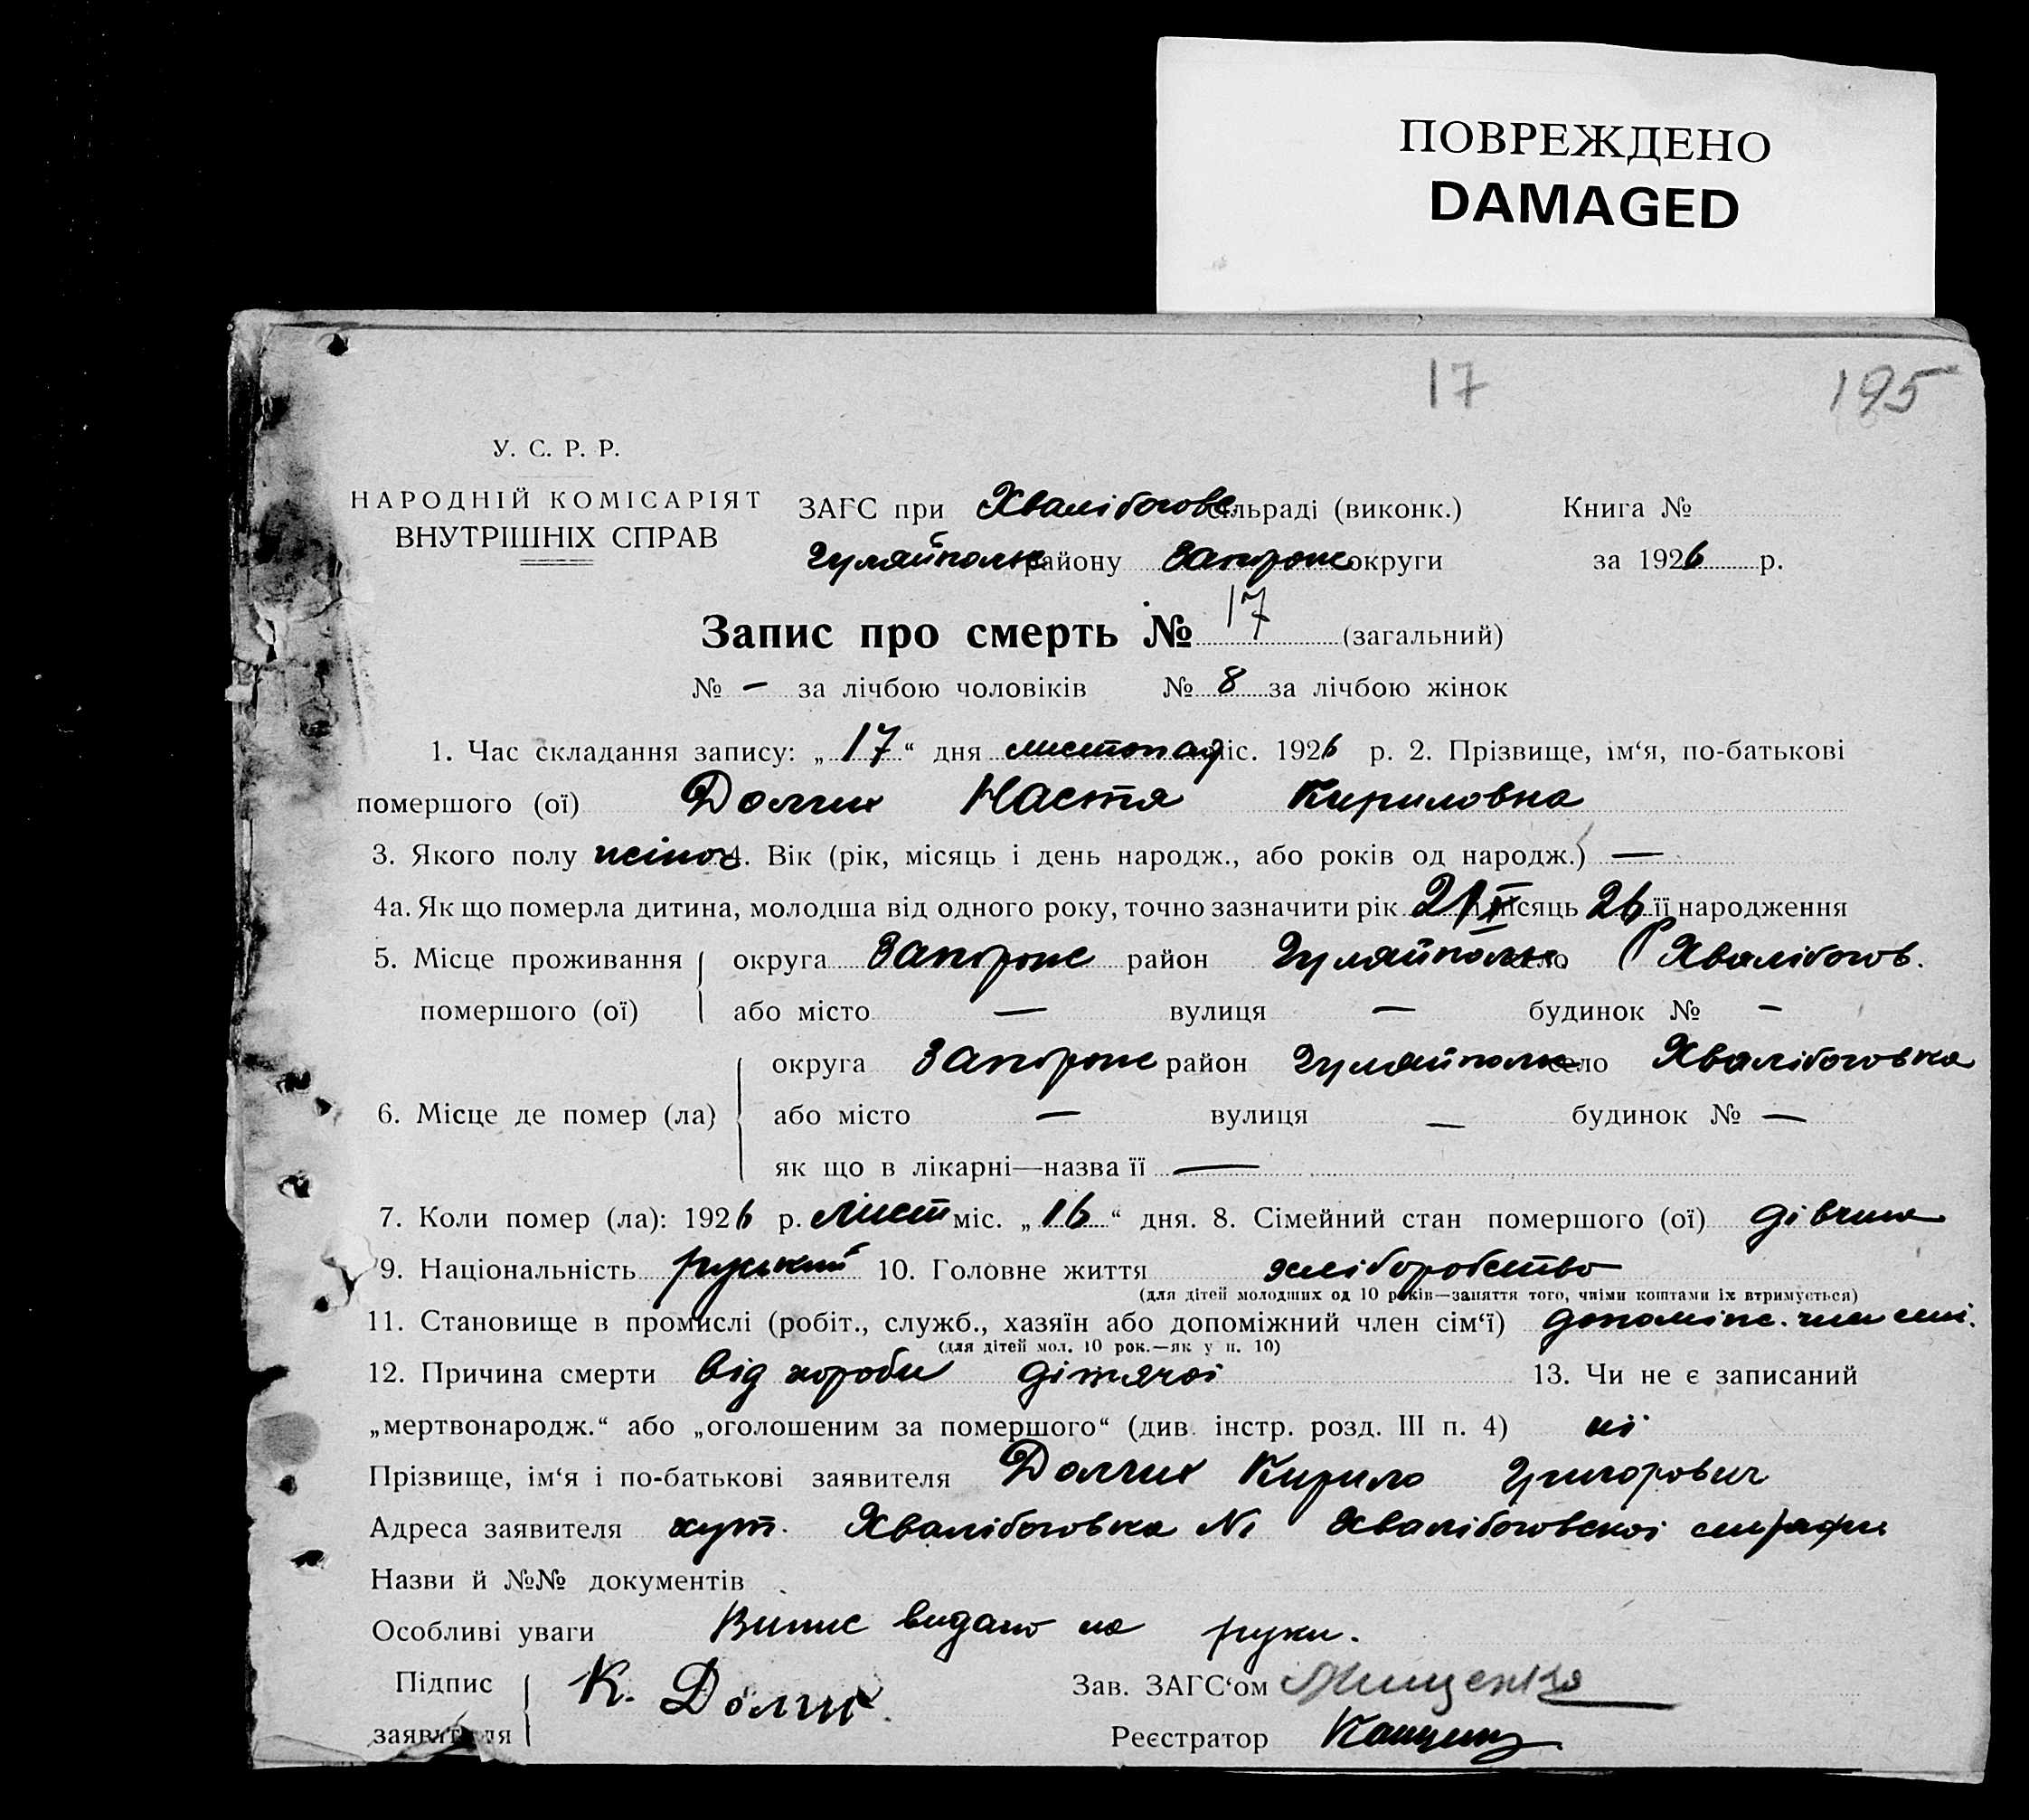 ПОВРЕЖДЕНО
DAMAGED
17 195
У. С. Р. Р.
НАРОДНІЙ КОМІСАРІЯТ
ВНУТРІШНІХ СПРАВ
ЗАГС при Хвалібогово сільраді (виконк.) Книга №
Гуляйполь району Запоріж округи за 1926 р.
Запис про смерть № 17 (загальний)
№ — за лічбою чоловіків № 8 за лічбою жінок
1. Час складання запису: „17“ дня листопад міс. 1926 р. 2. Прізвище, ім‘я, по-батькові
помершого (ої) Долгих Настя Кириловна
3. Якого полу жіноч 4. Вік (рік, місяць і день народж., або років од народж.) —
4а. Як що померла дитина, молодша від одного року, точно зазначити рік місяць 26 її народження
5. Місце проживання округа Запоріж район Гуляйполь село Хвалібогов.
помершого (ої) або місто — вулиця — будинок № —
округа Запоріж район Гуляйполь село Хвалібоговка
6. Місце де помер (ла) або місто — вулиця — будинок № —
як що в лікарні—назва її —
7. Коли помер (ла): 1926 р. лист міс. „16“ дня. 8. Сімейний стан помершого (ої) дівчина
9. Національність руський 10. Головне життя хліборобство
(для дітей молодших од 10 років—заняття того, чиїми коштами їх втримується)
11. Становище в промислі (робіт., служб., хазяїн або допоміжний член сім‘ї) допоміж. член сім.
(для дітей мол. 10 рок.—як у п. 10)
12. Причина смерти від хороби дітячої 13. Чи не є записаний
„мертвонародж.“ або „оголошеним за помершого“ (див. інстр. розд. III п. 4) ні
Прізвище, ім‘я і по-батькові заявителя Долгих Кирило Григорович
Адреса заявителя хут. Хвалібоговка №1 Хвалібоговської сільради
Назви й №№ документів
Особливі уваги Випис видано на руки.
Підпис К. Долгих Зав. ЗАГС‘ом Мищенко
заявителя Реєстратор